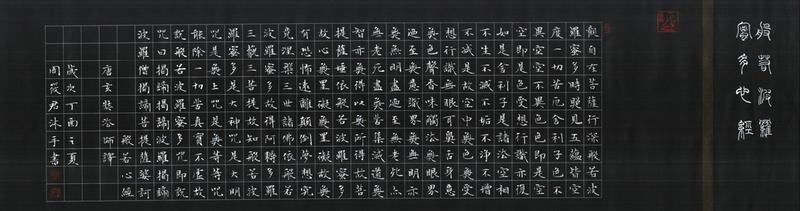 般若波羅
蜜多心經
觀自在菩薩行深般若波
羅蜜多時照見五蘊皆空
度一切苦厄舍利子色不
異空空不異色色即是空
空即是色受想行識亦復
如是舍利子是諸法空相
不生不滅不垢不淨不增
不減是故空中無色無受
想行識無眼耳鼻舌身意
無色聲香味觸法無眼界
迺至無意識界無無明亦
無無明盡迺至無老死亦
無老死盡無苦集滅道無
智亦無得以無所得故菩
提薩埵依般若波羅蜜多
故心無罣礙無罣礙故無
有恐怖遠離顛倒夢想究
竟涅槃三世諸佛依般若
波羅蜜多故得阿耨多羅
三藐三菩提故知般若波
羅蜜多是大神咒是大明
咒是無上咒是無等等咒
能除一切苦真實不虛故
說般若波羅蜜多咒即說
咒曰揭諦揭諦波羅揭諦
波羅僧揭諦菩提薩婆訶
般若心經
唐玄奘法師譯
歲次丁酉之夏
周筱君沐手書